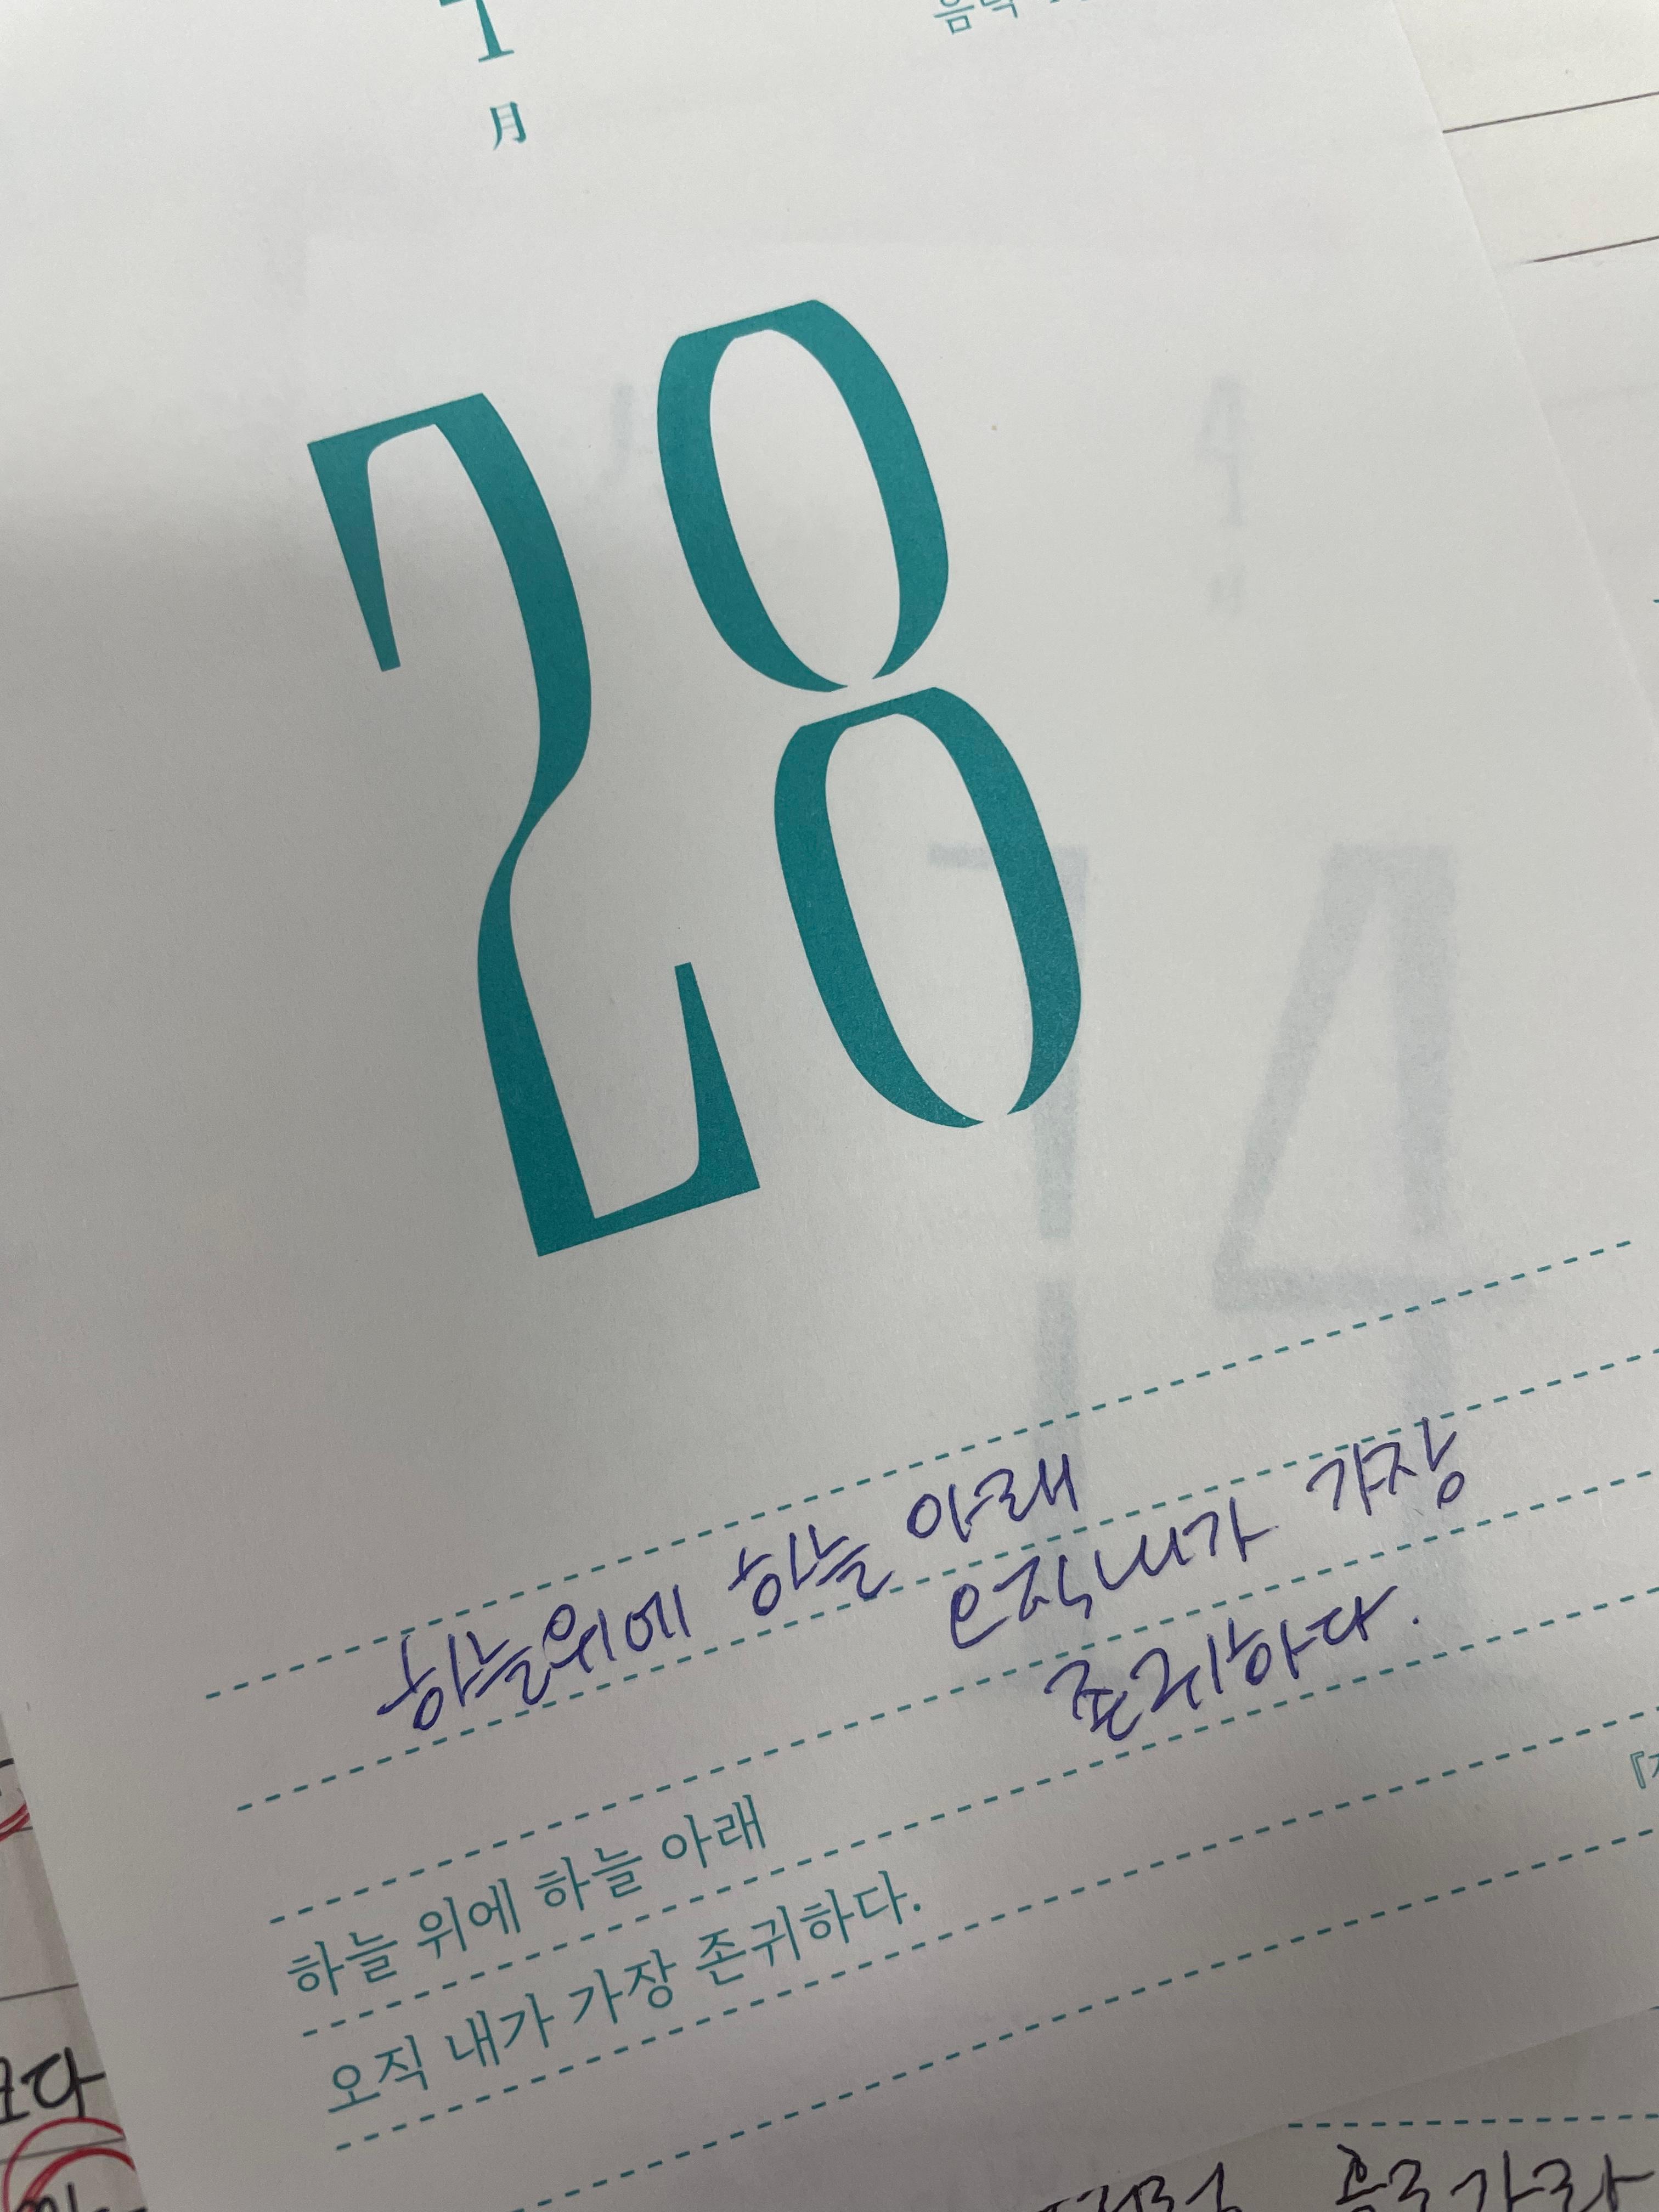 月
음력
28
14
하늘위에 하늘 아래
오직내가 가장
존귀하다.
하늘 위에 하늘 아래
오직 내가 가장 존귀하다.